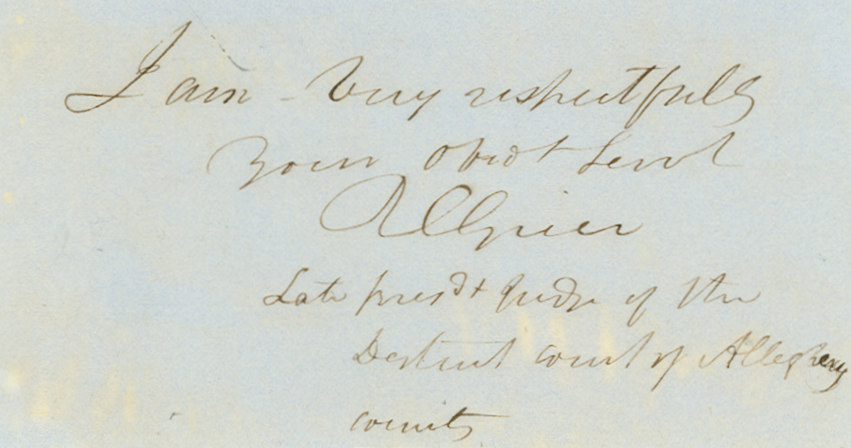 I am - Very respectfully
Your obedt Servt
R C Grier
Late presdt Judge of the
District court of Allegheny
county